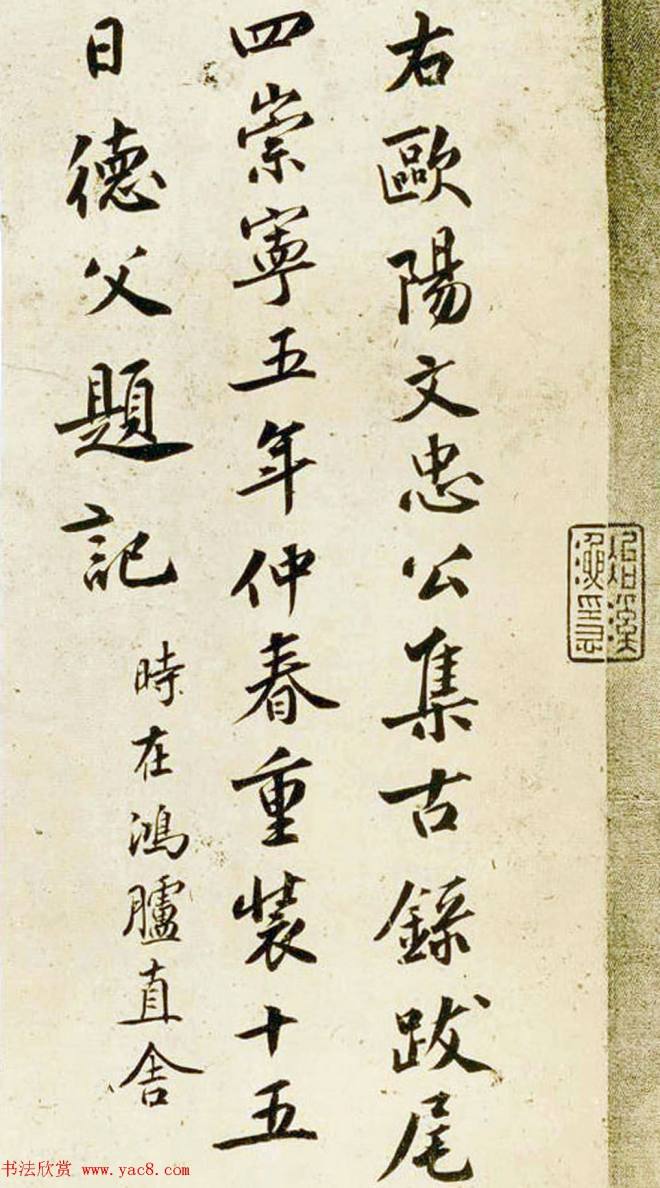 右歐陽文忠公集古錄跋尾
四崇寧五年仲春重装十五
日德父題記
時在鴻臚直舍
书法欣赏 www.yac8.com